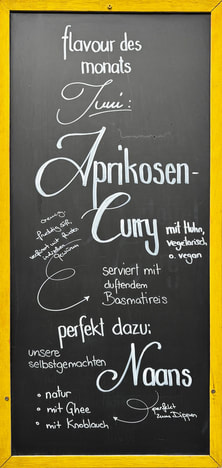 flavour des
monats
Juni:
Aprikosen-
Curry
mit Huhn,
vegetarisch,
o. vegan
cremig
fruchtig süß,
verfeinert mit
indischen
Gewürzen
serviert mit
duftendem
Basmatireis
perfekt dazu:
unsere
selbstgemachten
Naans
• natur
• mit Ghee
• mit Knoblauch
perfekt
zum Dippen